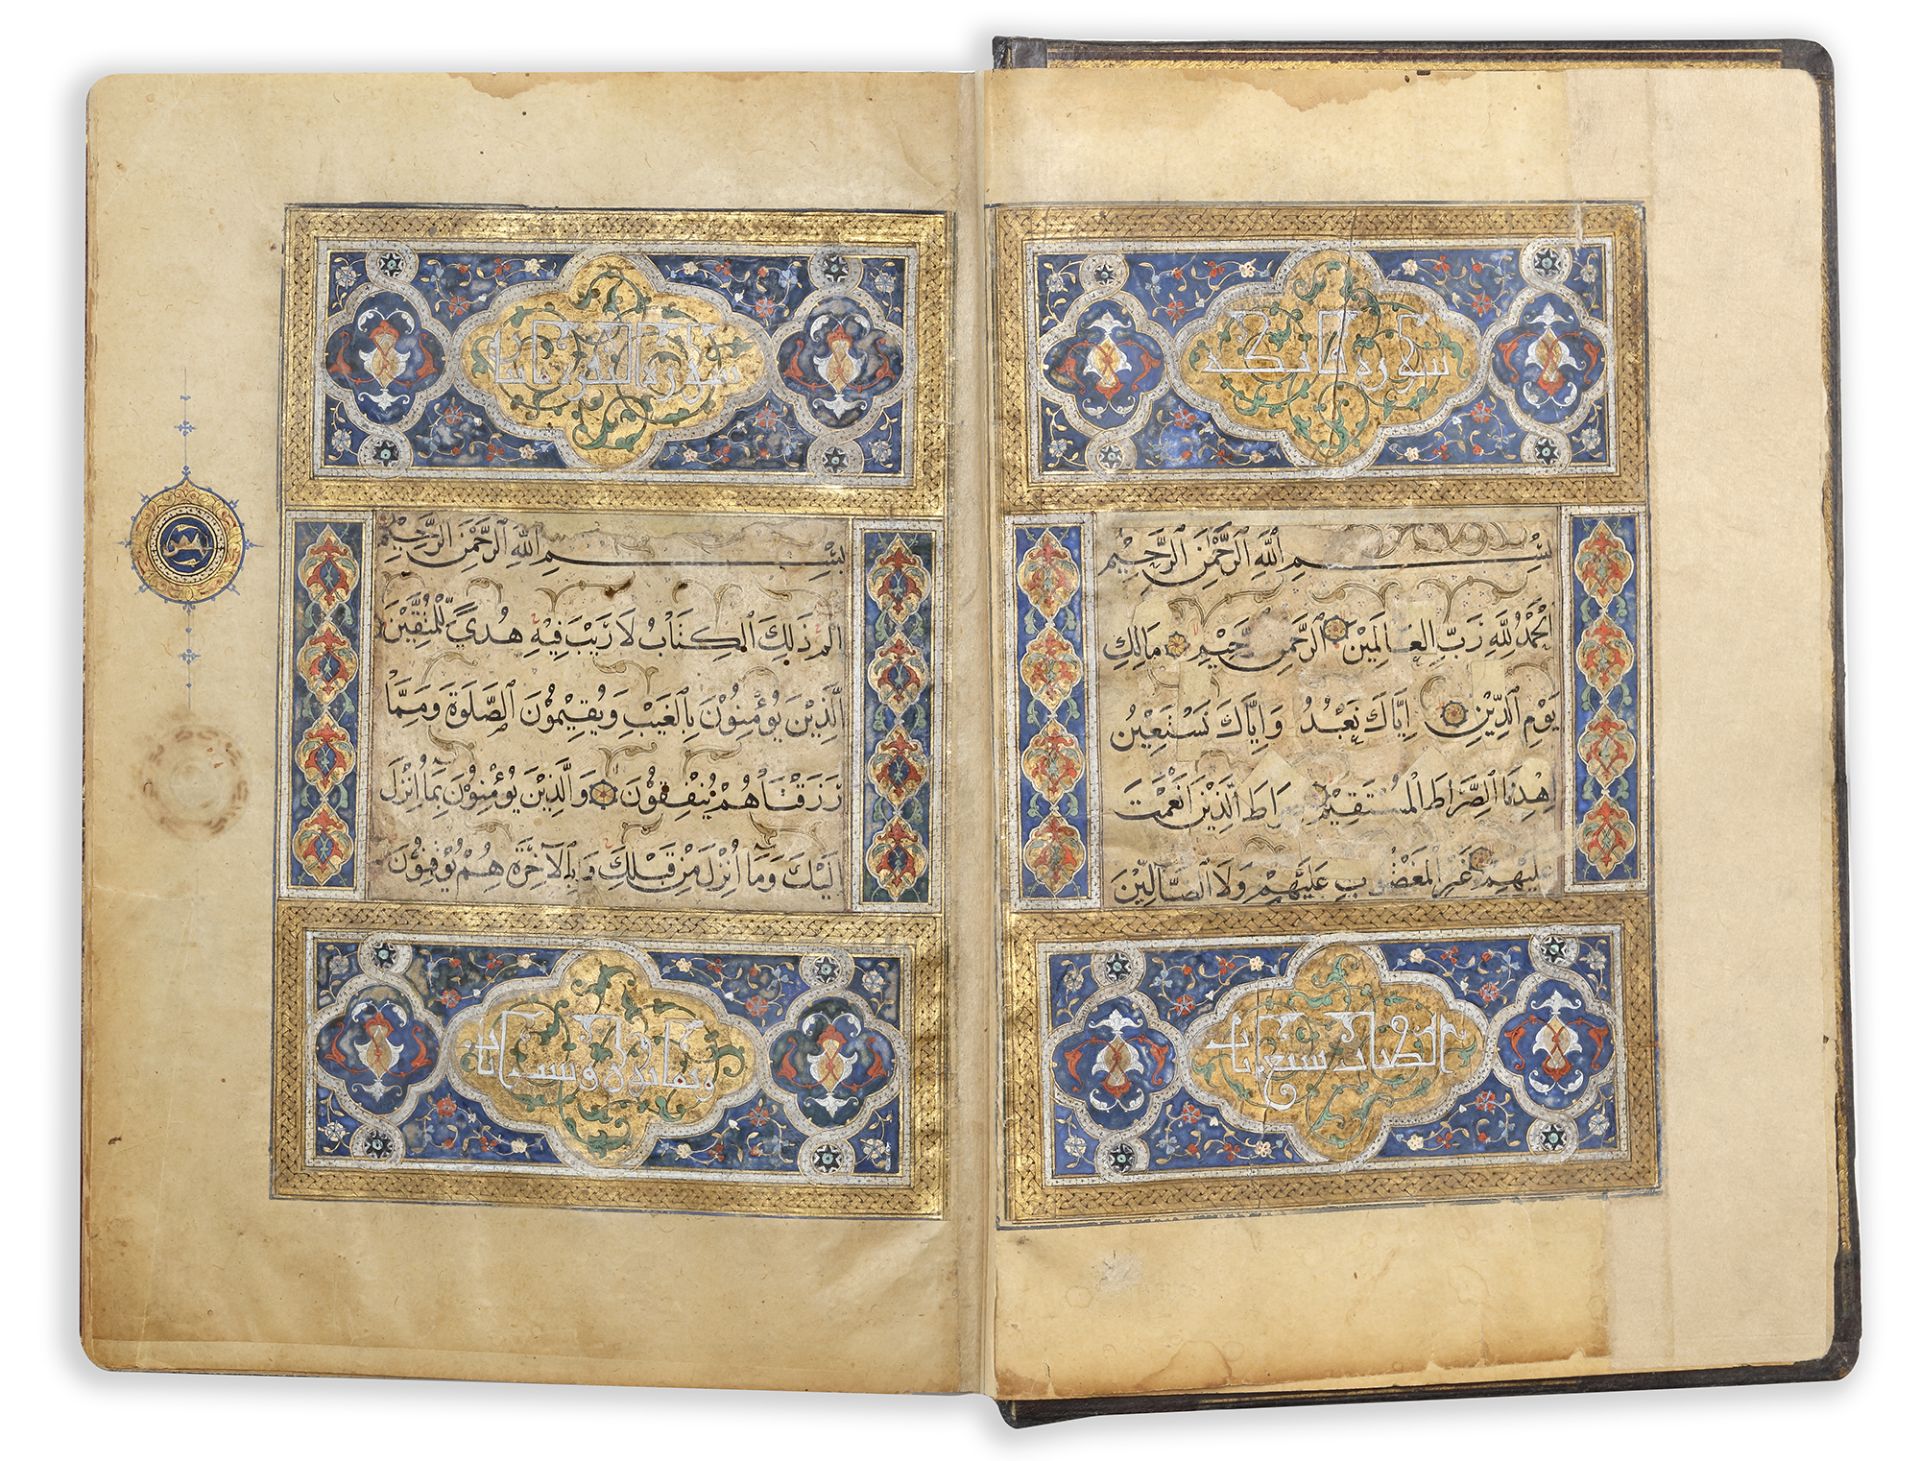 سورة فاتحة
بِسْمِ اللهِ الرَّحْمٰنِ الرَّحِيْمِ
اَلْحَمْدُ لِلّٰهِ رَبِّ الْعَالَمِيْنَ الرَّحْمٰنِ الرَّحِيْمِ مَالِكِ
يَوْمِ الدِّيْنِ اِيَّاكَ نَعْبُدُ وَاِيَّاكَ نَسْتَعِيْنُ
اِهْدِنَا الصِّرَاطَ الْمُسْتَقِيْمَ صِرَاطَ الَّذِيْنَ اَنْعَمْتَ
عَلَيْهِمْ غَيْرِ الْمَغْضُوْبِ عَلَيْهِمْ وَلَا الضَّالِّيْنَ
الكتاب سبع ايات
سورة البقرة مايتا
بِسْمِ اللهِ الرَّحْمٰنِ الرَّحِيْمِ
الم ذٰلِكَ الْكِتَابُ لَا رَيْبَ فِيْهِ هُدًى لِلْمُتَّقِيْنَ
الَّذِيْنَ يُؤْمِنُوْنَ بِالْغَيْبِ وَيُقِيْمُوْنَ الصَّلٰوةَ وَمِمَّا
رَزَقْنَاهُمْ يُنْفِقُوْنَ وَالَّذِيْنَ يُؤْمِنُوْنَ بِمَا اُنْزِلَ
اِلَيْكَ وَمَا اُنْزِلَ مِنْ قَبْلِكَ وَبِالْاٰخِرَةِ هُمْ يُوْقِنُوْنَ
وثمانون وست ايات
خمس